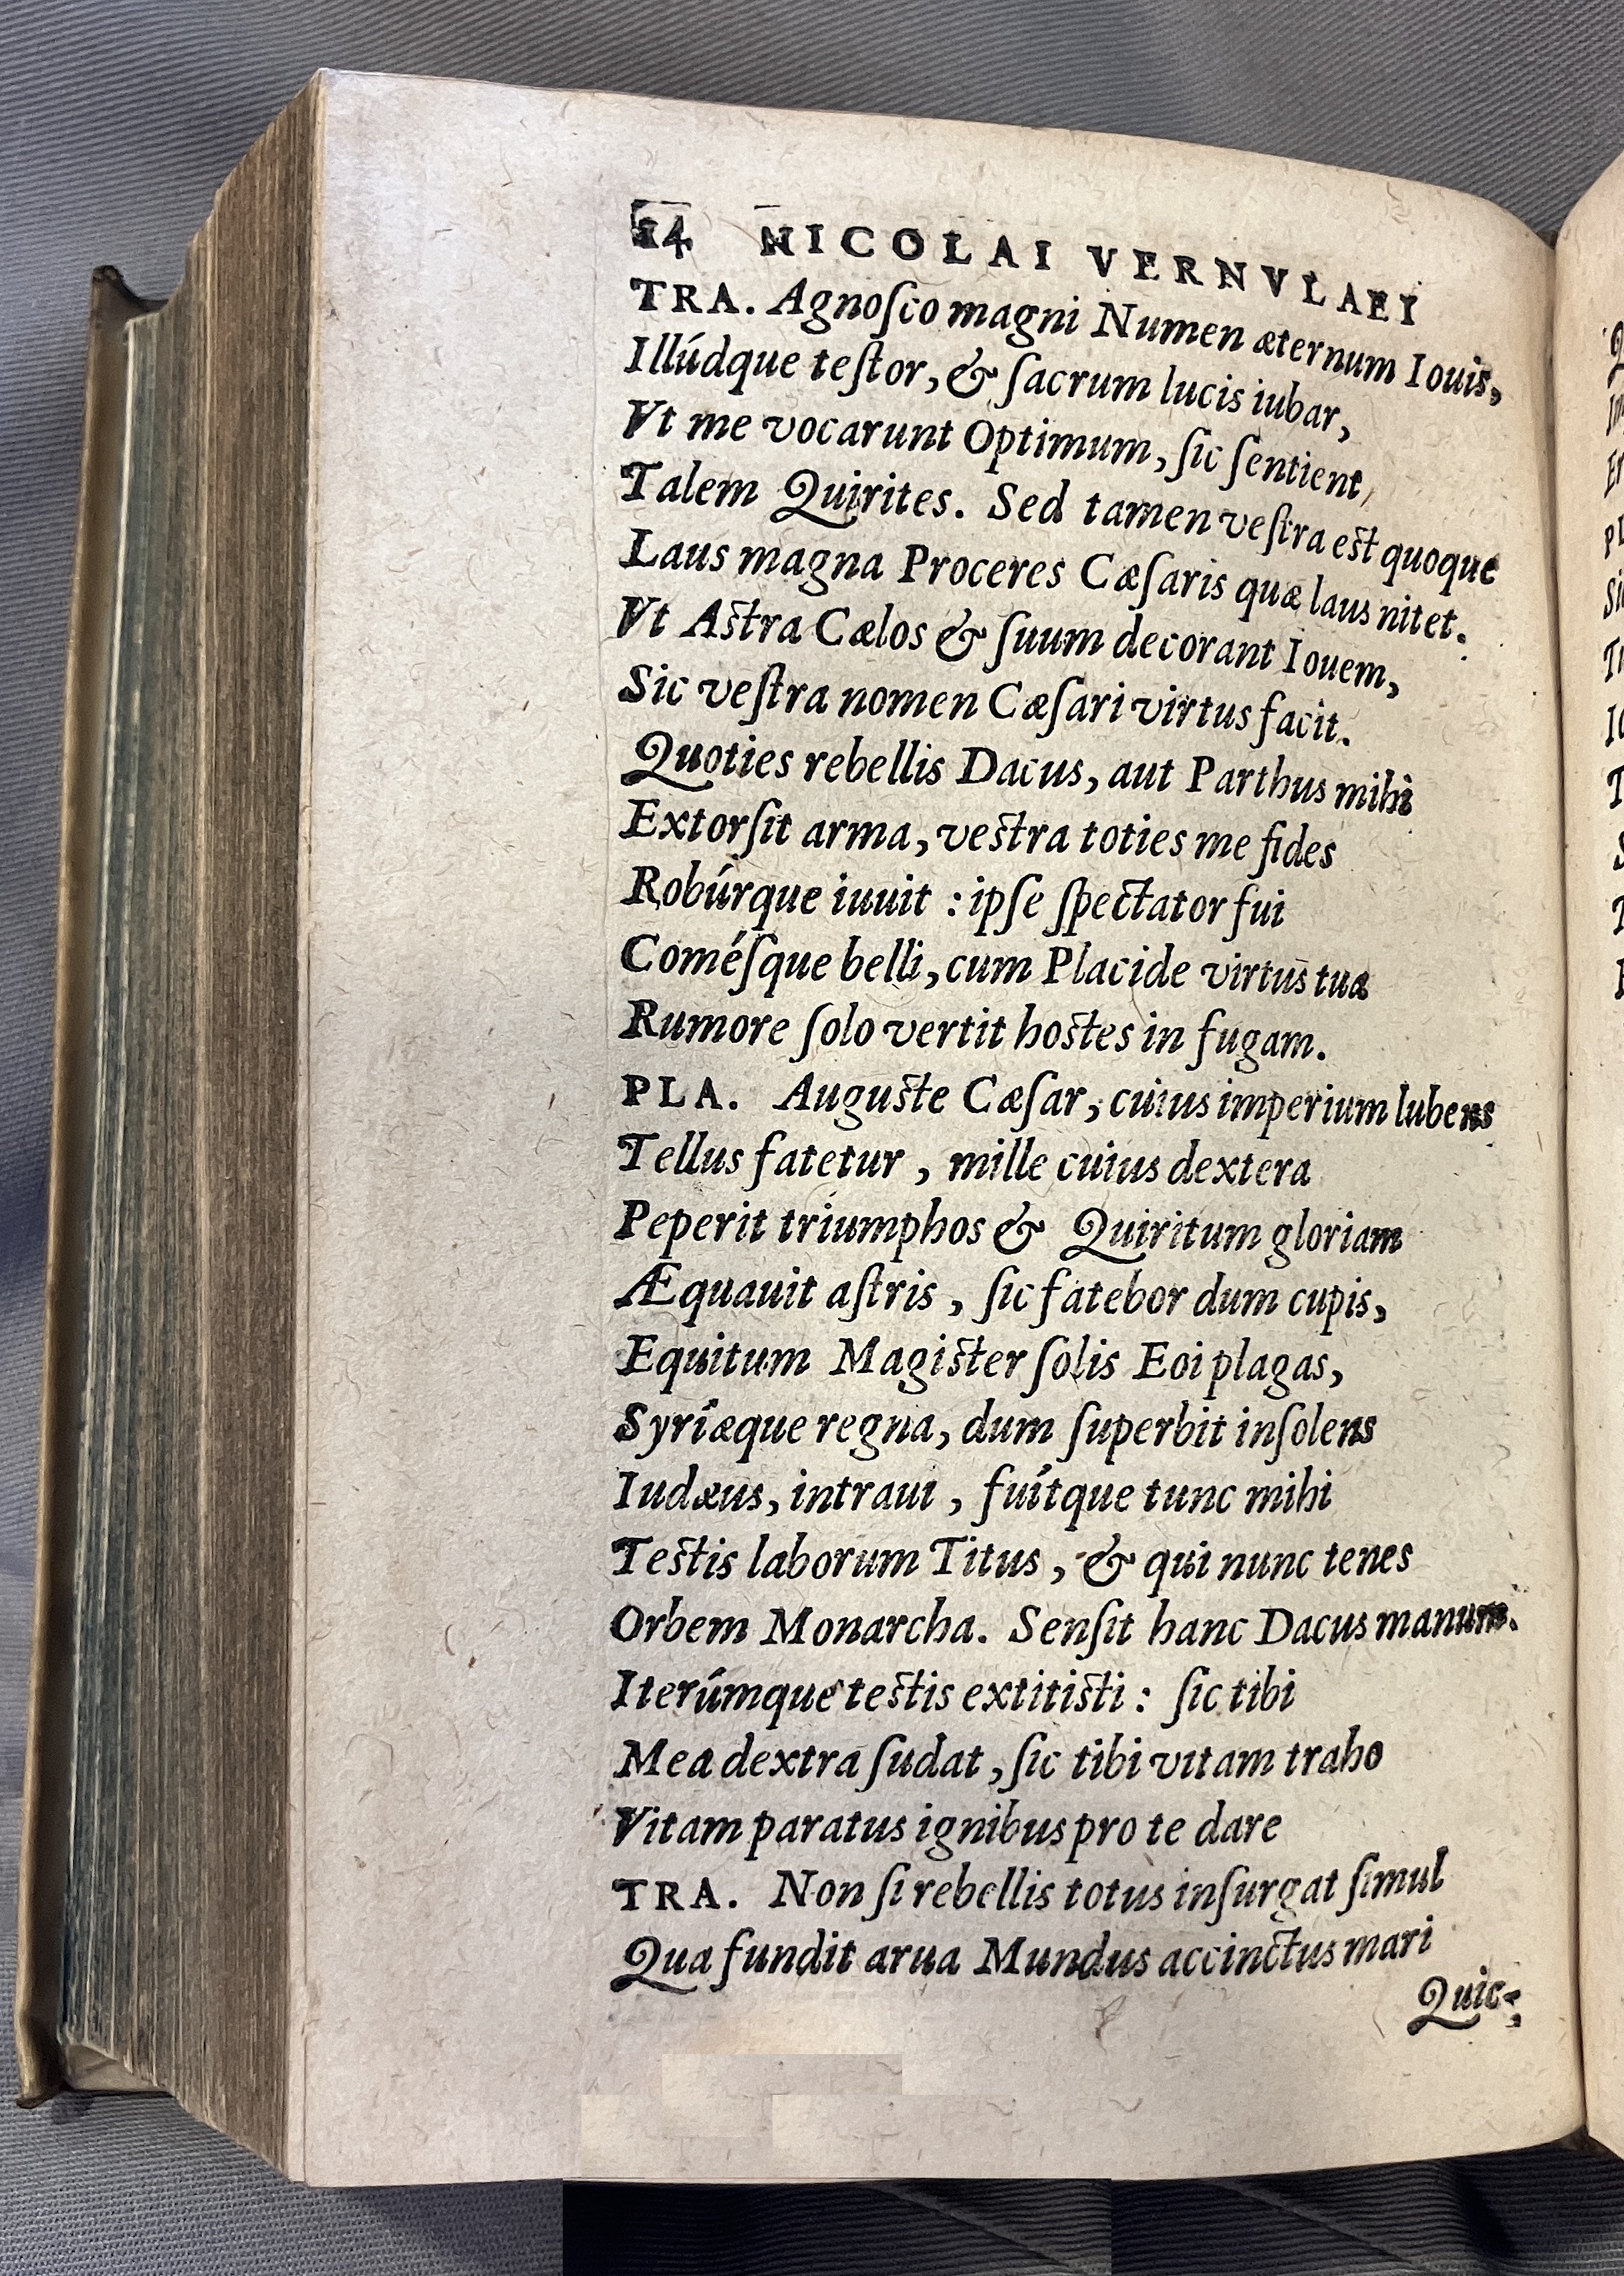 14 NICOLAI VERNVLAEI
TRA. Agnoſco magni Numen æternum Iouis,
Illúdque teſtor, & ſacrum lucis iubar,
Vt me vocarunt Optimum, ſic ſentient,
Talem Quirites. Sed tamen veſtra est quoque
Laus magna Proceres Cæſaris quæ laus nitet.
Vt Astra Cælos & ſuum decorant Iouem,
Sic veſtra nomen Cæſari virtus facit.
Quoties rebellis Dacus, aut Parthus mihi
Extorſit arma, vestra toties me fides
Robúrque iuuit : ipſe ſpectator fui
Coméſque belli, cum Placide virtus tua
Rumore ſolo vertit hostes in fugam.
PLA. Auguste Cæſar, cuius imperium lubens
Tellus fatetur , mille cuius dextera
Peperit triumphos & Quiritum gloriam
Æquauit aſtris , ſic fatebor dum cupis,
Equitum Magister ſolis Eoi plagas,
Syriæque regna, dum ſuperbit inſolens
Iudæus, intraui , fuítque tunc mihi
Testis laborum Titus , & qui nunc tenes
Orbem Monarcha. Senſit hanc Dacus manum.
Iterúmque testis extitisti : ſic tibi
Mea dextra ſudat , ſic tibi vitam traho
Vitam paratus ignibus pro te dare
TRA. Non ſi rebellis totus inſurgat ſimul
Qua fundit arua Mundus accinctus mari
Quic-